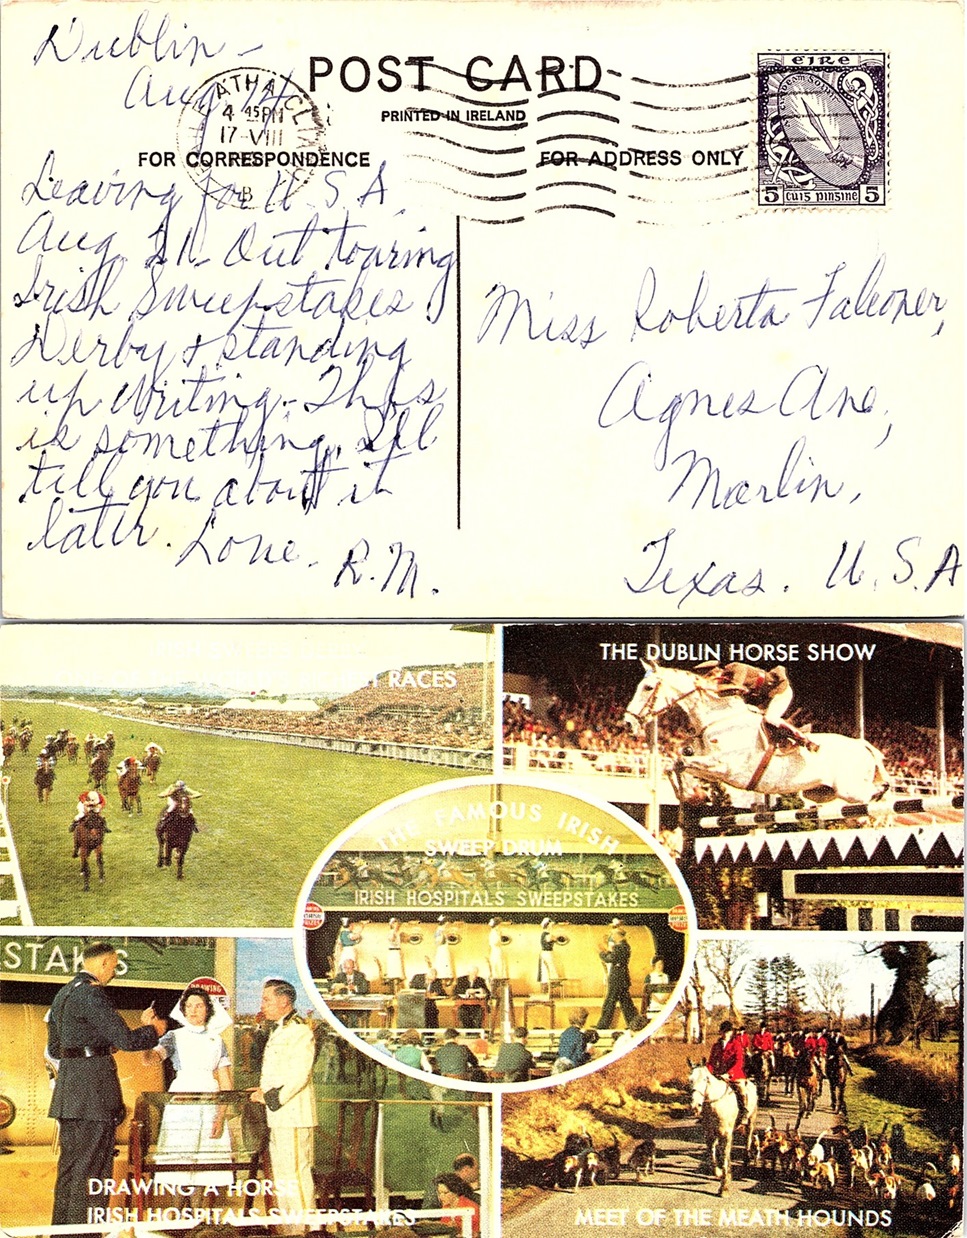 Dublin -
Aug 17
POST CARD
PRINTED IN IRELAND
FOR CORRESPONDENCE
FOR ADDRESS ONLY
ATHA CLI
4 45PM
17 VIII
B
EIRE
5 CUIS PINSINE 5
Leaving for U.S.A.
Aug 21. Out touring
Irish Sweepstakes
Derby & standing
up writing. This
is something. I'll
tell you about it
later. Love.
R.M.
Miss Roberta Falconer,
Agnes Ave,
Marlin,
Texas. U.S.A
RACES
THE DUBLIN HORSE SHOW
THE FAMOUS IRISH
SWEEP DRUM
IRISH HOSPITALS SWEEPSTAKES
STAKES
DRAWING
DRAWING A HORSE
IRISH HOSPITALS SWEEPSTAKES
MEET OF THE MEATH HOUNDS